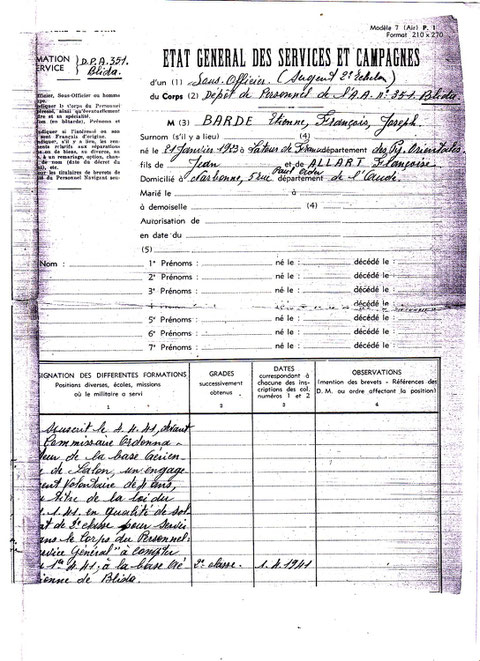 Modèle 7 (Air) P. 1
Format 210 x 270
MATION D.P.A. 351.
SERVICE Blida.
ETAT GENERAL DES SERVICES ET CAMPAGNES
d'un (1) Sous-Officier (Sergent 2e Echelon)
du Corps (2) Dépôt de Personnel de l'A.A. n° 351. Blida.
M (3) BARDE Etienne, François, Joseph.
Surnom (s'il y a lieu) (4)
né le 21 Janvier 1923 à Latour de France département des Pyr. Orientales
fils de Jean et de ALLART Françoise
Domicilié à Narbonne, 5 rue Paul département de l'Aude
Marié le à
à demoiselle (4)
Autorisation de
en date du
(5)
Nom : 1° Prénoms : né le : décédé le :
2° Prénoms : né le : décédé le :
3° Prénoms : né le : décédé le :
5° Prénoms : né le : décédé le :
6° Prénoms : né le : décédé le :
7° Prénoms : né le : décédé le :
SIGNATION DES DIFFERENTES FORMATIONS
Positions diverses, écoles, missions
où le militaire a servi
1
GRADES
successivement
obtenus
2
DATES
correspondant à
chacune des ins-
criptions des col.
numéros 1 et 2
3
OBSERVATIONS
(mention des brevets - Références des
D. M. ou ordre affectant la position)
4
souscrit le 4.4.41, devant
Commissaire Ordonna-
teur de la base Aérien-
de Salon, un engage
ent Volontaire de 4 ans,
u titre de la loi du
.1.41. en qualité de sol
at de 2e classe pour servir
ans le Corps du Personnel
rvice Général" à compter
u 1er 4.41, à la base Aé 2e classe. 1.4.1941
ienne de Blida.